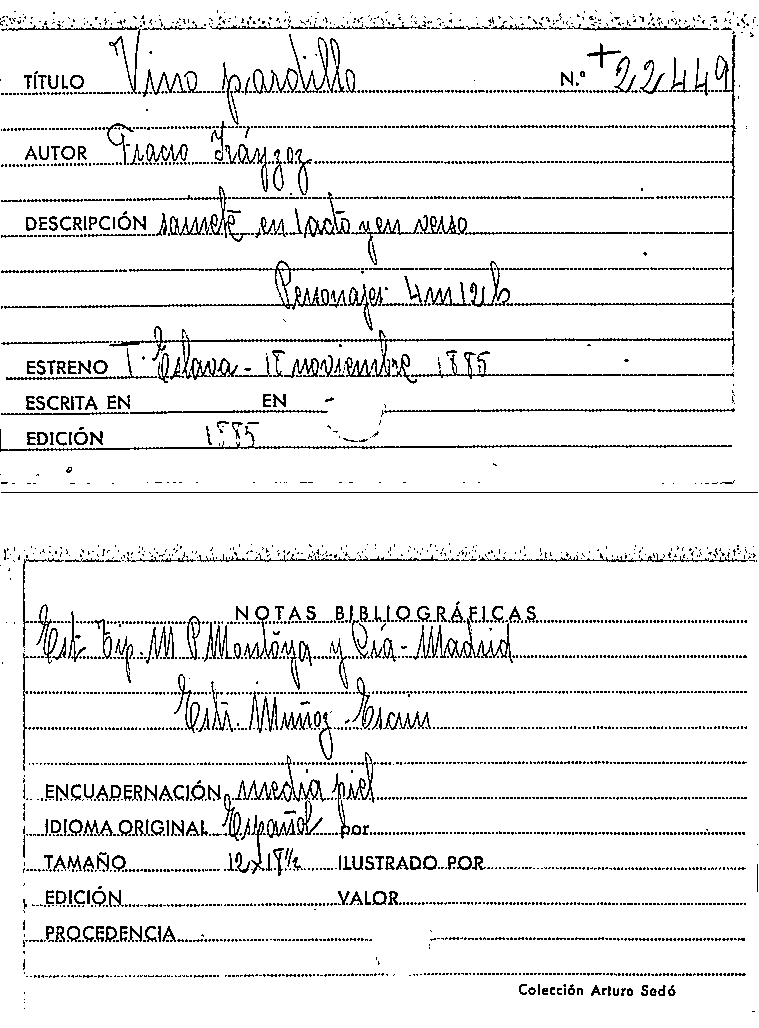 TÍTULO Vino pardillo N.º + 22449
AUTOR Fiacro Iráyzoz
DESCRIPCIÓN sainete en 1 acto y en verso
Personajes 4m 12h
ESTRENO T. Eslava - 18 noviembre 1885
ESCRITA EN EN -
EDICIÓN 1885
NOTAS BIBLIOGRÁFICAS
Est. Tip. M P Montoya y Cía - Madrid
Estr. Muñoz -
ENCUADERNACIÓN media piel
IDIOMA ORIGINAL Español por
TAMAÑO 12x18½ ILUSTRADO POR
EDICIÓN VALOR
PROCEDENCIA
Colección Arturo Sedó